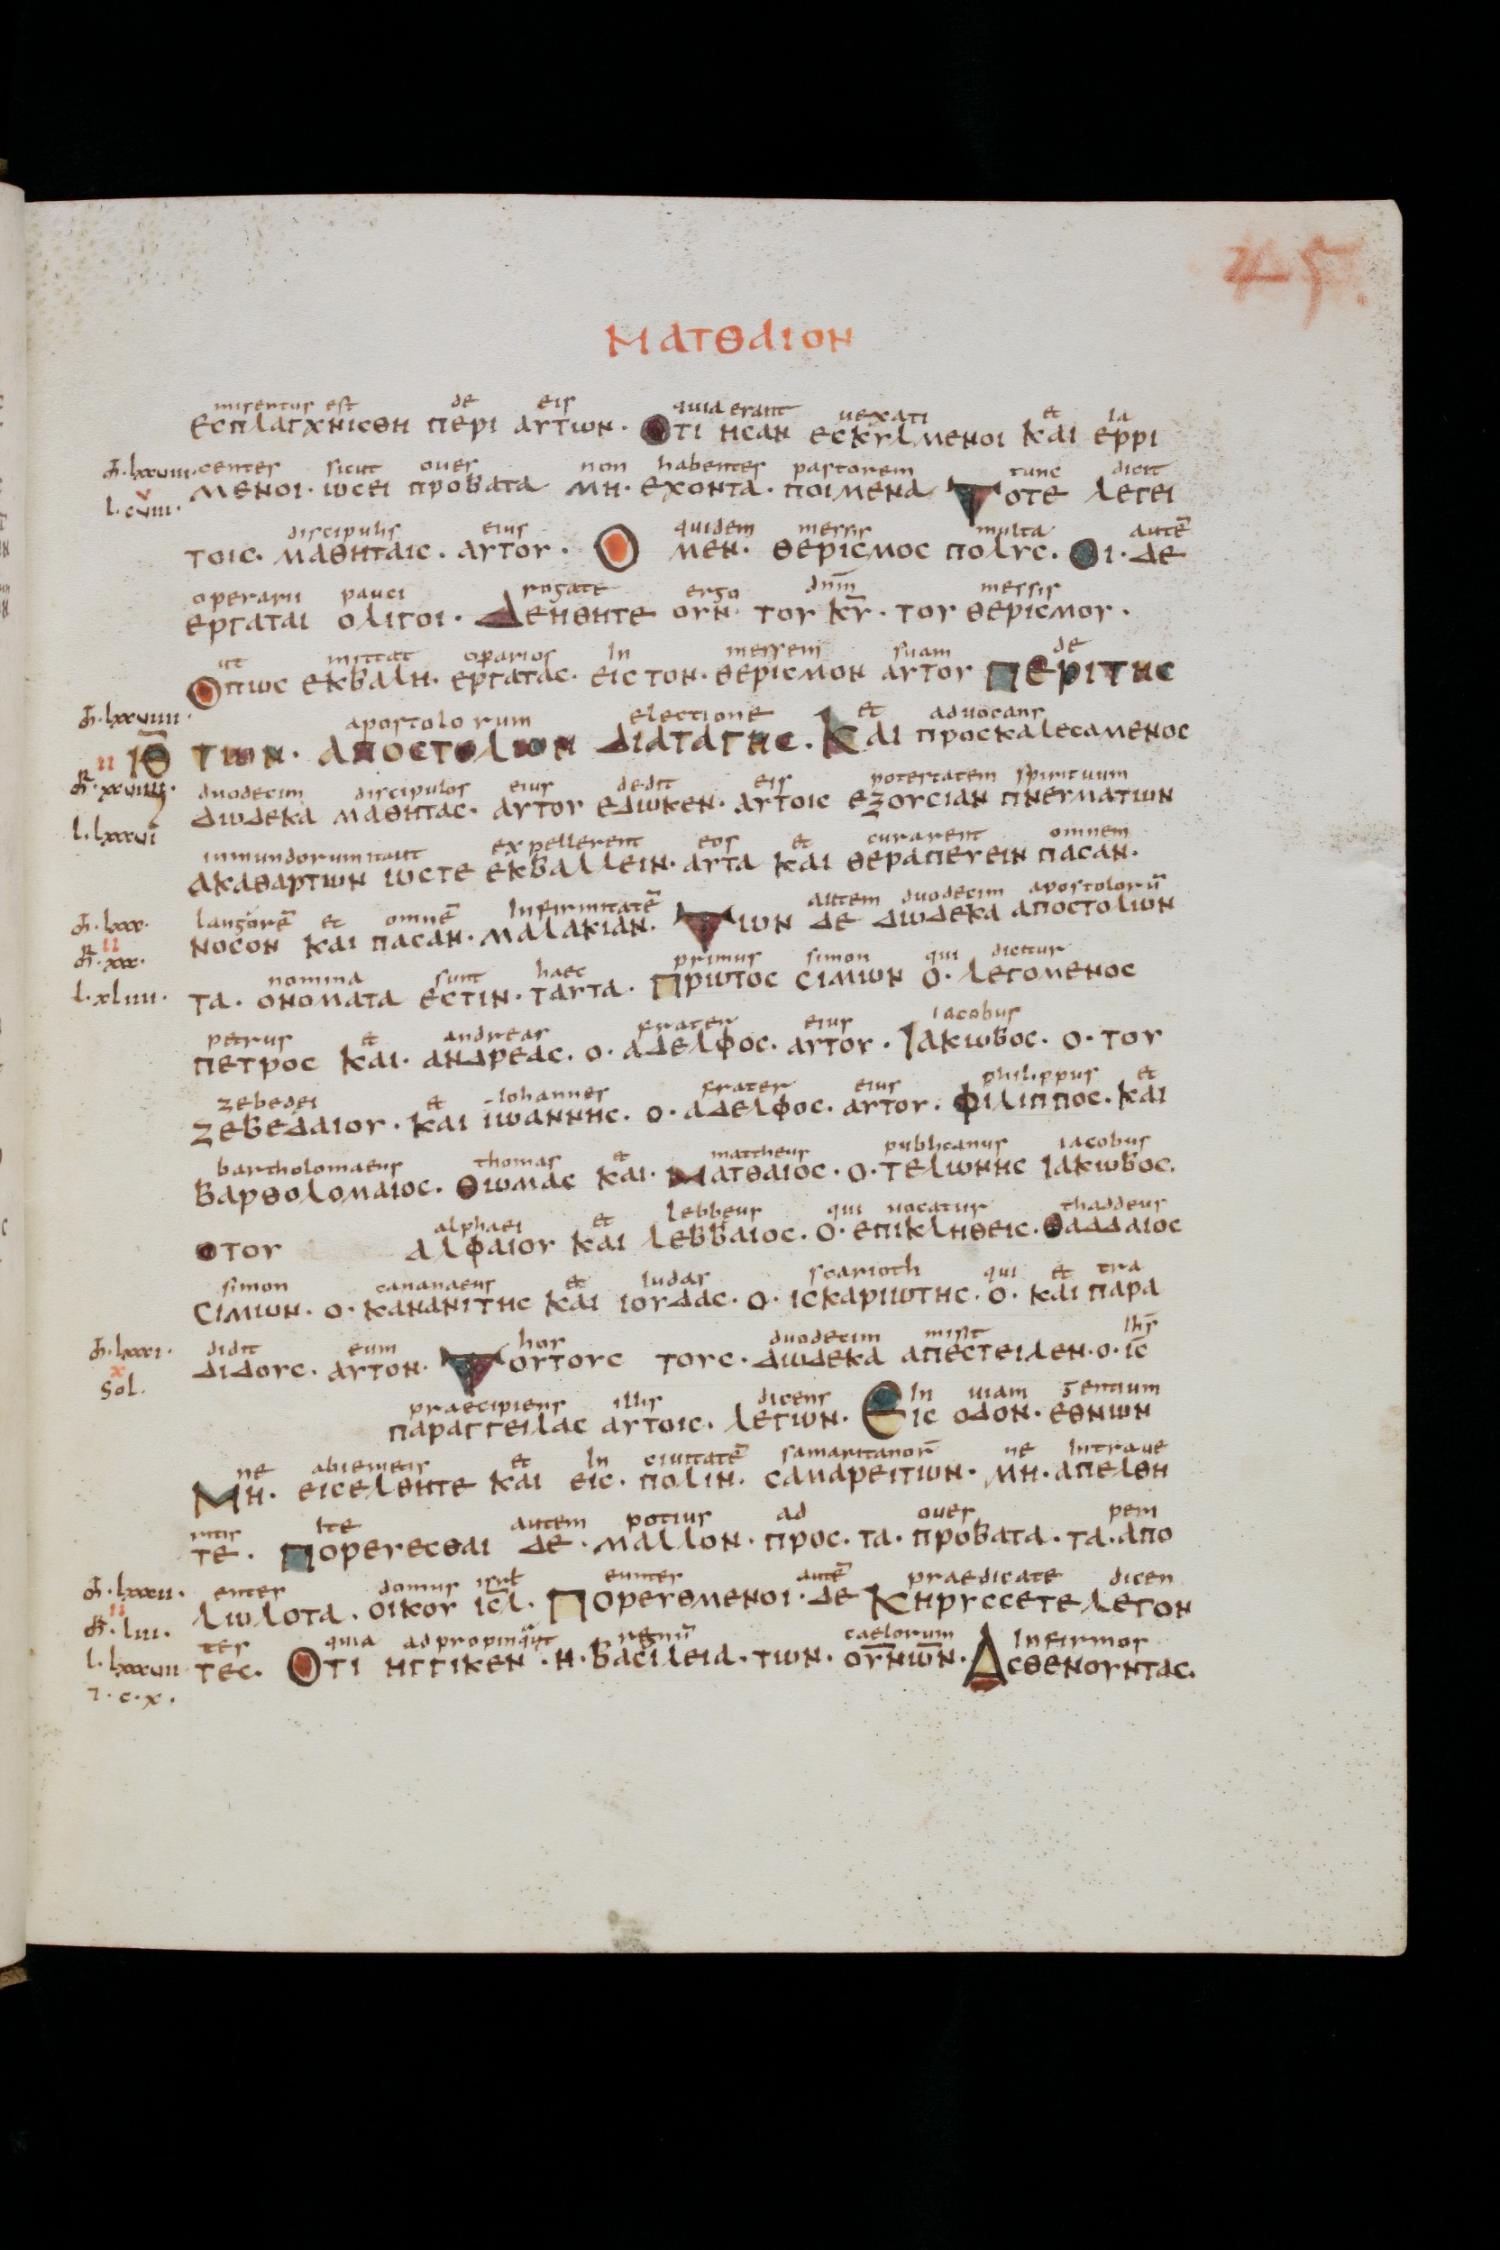 45.
ΜΑΤΘΑΙΟΝ
misertus est de eis quia erant uexati et ia
ΕCΠΛΑΓΧΝΙCΘΗ ΠΕΡΙ ΑΥΤΩΝ· ΟΤΙ ΗCΑΝ ΕCΚΥΛΜΕΝΟΙ ΚΑΙ ΕΡΡΙ
centes sicut oues non habentes pastorem tunc dicit
ΜΕΝΟΙ· ΩCΕΙ ΠΡΟΒΑΤΑ ΜΗ· ΕΧΟΝΤΑ· ΠΟΙΜΕΝΑ ΤΟΤΕ ΛΕΓΕΙ
discipulis eius quidem messis multa autē
ΤΟΙC· ΜΑΘΗΤΑΙC· ΑΥΤΟΥ· Ο ΜΕΝ· ΘΕΡΙCΜΟC ΠΟΛΥC· ΟΙ· ΔΕ
operarii pauci rogate ergo dnm̄ messis
ΕΡΓΑΤΑΙ ΟΛΙΓΟΙ· ΔΕΗΘΗΤΕ ΟΥΝ· ΤΟΥ ΚῩ· ΤΟΥ ΘΕΡΙCΜΟΥ·
ut mittat oparios in messem suam de
ΟΠΩC ΕΚΒΑΛΗ· ΕΡΓΑΤΑC· ΕΙC ΤΟΝ· ΘΕΡΙCΜΟΝ ΑΥΤΟΥ ΠΕΡΙ ΤΗC
apostolorum electione et aduocans
ΙΘ̄ ΤΩΝ· ΑΠΟCΤΟΛΩΝ ΔΙΑΤΑΓΗC· ΚΑΙ ΠΡΟCΚΑΛΕCΑΜΕΝΟC
duodecim discipulos eius dedit eis potestatem spirituum
ΔΩΔΕΚΑ ΜΑΘΗΤΑC· ΑΥΤΟΥ ΕΔΩΚΕΝ· ΑΥΤΟΙC ΕΖΟΥCΙΑΝ ΠΝΕΥΜΑΤΩΝ
inmundorum itaut expellerent eos et curarent omnem
ΑΚΑΘΑΡΤΩΝ ΩCΤΕ ΕΚΒΑΛΛΕΙΝ· ΑΥΤΑ ΚΑΙ ΘΕΡΑΠΕΥΕΙΝ ΠΑCΑΝ·
langorē et omnē infirmitatē autem duodecim apostolorū
ΝΟCΟΝ ΚΑΙ ΠΑCΑΝ· ΜΑΛΑΚΙΑΝ· ΤΩΝ ΔΕ ΔΩΔΕΚΑ ΑΠΟCΤΟΛΩΝ
nomina sunt haec primus simon qui dicitur
ΤΑ· ΟΝΟΜΑΤΑ ΕCΤΙΝ· ΤΑΥΤΑ· ΠΡΩΤΟC CΙΜΩΝ Ο· ΛΕΓΟΜΕΝΟC
petrus et andreas frater eius iacobus
ΠΕΤΡΟC ΚΑΙ· ΑΝΔΡΕΑC· Ο· ΑΔΕΛΦΟC· ΑΥΤΟΥ· ΙΑΚΩΒΟC· Ο· ΤΟΥ
zebedei et iohannes frater eius philippus et
ΖΕΒΕΔΑΙΟΥ· ΚΑΙ ΙΩΑΝΝΗC· Ο· ΑΔΕΛΦΟC· ΑΥΤΟΥ· ΦΙΛΙΠΠΟC· ΚΑΙ
bartholomaeus thomas et mattheus publicanus iacobus
ΒΑΡΘΟΛΟΜΑΙΟC· ΘΩΜΑC ΚΑΙ· ΜΑΤΘΑΙΟC· Ο· ΤΕΛΩΝΗC ΙΑΚΩΒΟC·
alphaei et lebbeus qui uocatur thaddeus
ΟΤΟΥ ΑΛΦΑΙΟΥ ΚΑΙ ΛΕΒΒΑΙΟC· Ο· ΕΠΙΚΛΗΘΕΙC· ΘΑΔΔΑΙΟC
simon cananaeus et iudas scarioth qui et tra
CΙΜΩΝ· Ο· ΚΑΝΑΝΙΤΗC ΚΑΙ ΙΟΥΔΑC· Ο· ΙCΚΑΡΙΩΤΗC· Ο· ΚΑΙ ΠΑΡΑ
didit eum hos duodecim misit ihs̄
ΔΙΔΟΥC· ΑΥΤΟΝ· ΤΟΥΤΟΥC ΤΟΥC· ΔΩΔΕΚΑ ΑΠΕCΤΕΙΛΕΝ· Ο· ΙC̄
praecipiens illis dicens in uiam gentium
ΠΑΡΑΓΓΕΙΛΑC ΑΥΤΟΙC· ΛΕΓΩΝ· ΕΙC ΟΔΟΝ· ΕΘΝΩΝ
ne abieritis et in ciuitatē samaritanor̄ ne intraue
ΜΗ· ΕΙCΕΛΘΗΤΕ ΚΑΙ ΕΙC· ΠΟΛΙΝ· CΑΜΑΡΕΙΤΩΝ· ΜΗ· ΑΠΕΛΘΗ
ritis ite autem potius ad oues peri
ΤΕ· ΠΟΡΕΥΕCΘΑΙ ΔΕ· ΜΑΛΛΟΝ· ΠΡΟC· ΤΑ· ΠΡΟΒΑΤΑ· ΤΑ· ΑΠΟ
enter domus isrł eunter autē praedicate dicen
ΛΩΛΟΤΑ· ΟΙΚΟΥ ΙCΛ̄· ΠΟΡΕΥΘΜΕΝΟΙ· ΔΕ ΚΗΡΥCCΕΤΕ ΛΕΓΟΝ
tes quia adpropinquit regnū caelorum infirmos
ΤΕC· ΟΤΙ ΗΓΓΙΚΕΝ· Η· ΒΑCΙΛΕΙΑ· ΤΩΝ· ΟΥΝ̄ΩΝ̄· ΑCΘΕΝΟΥΝΤΑC·